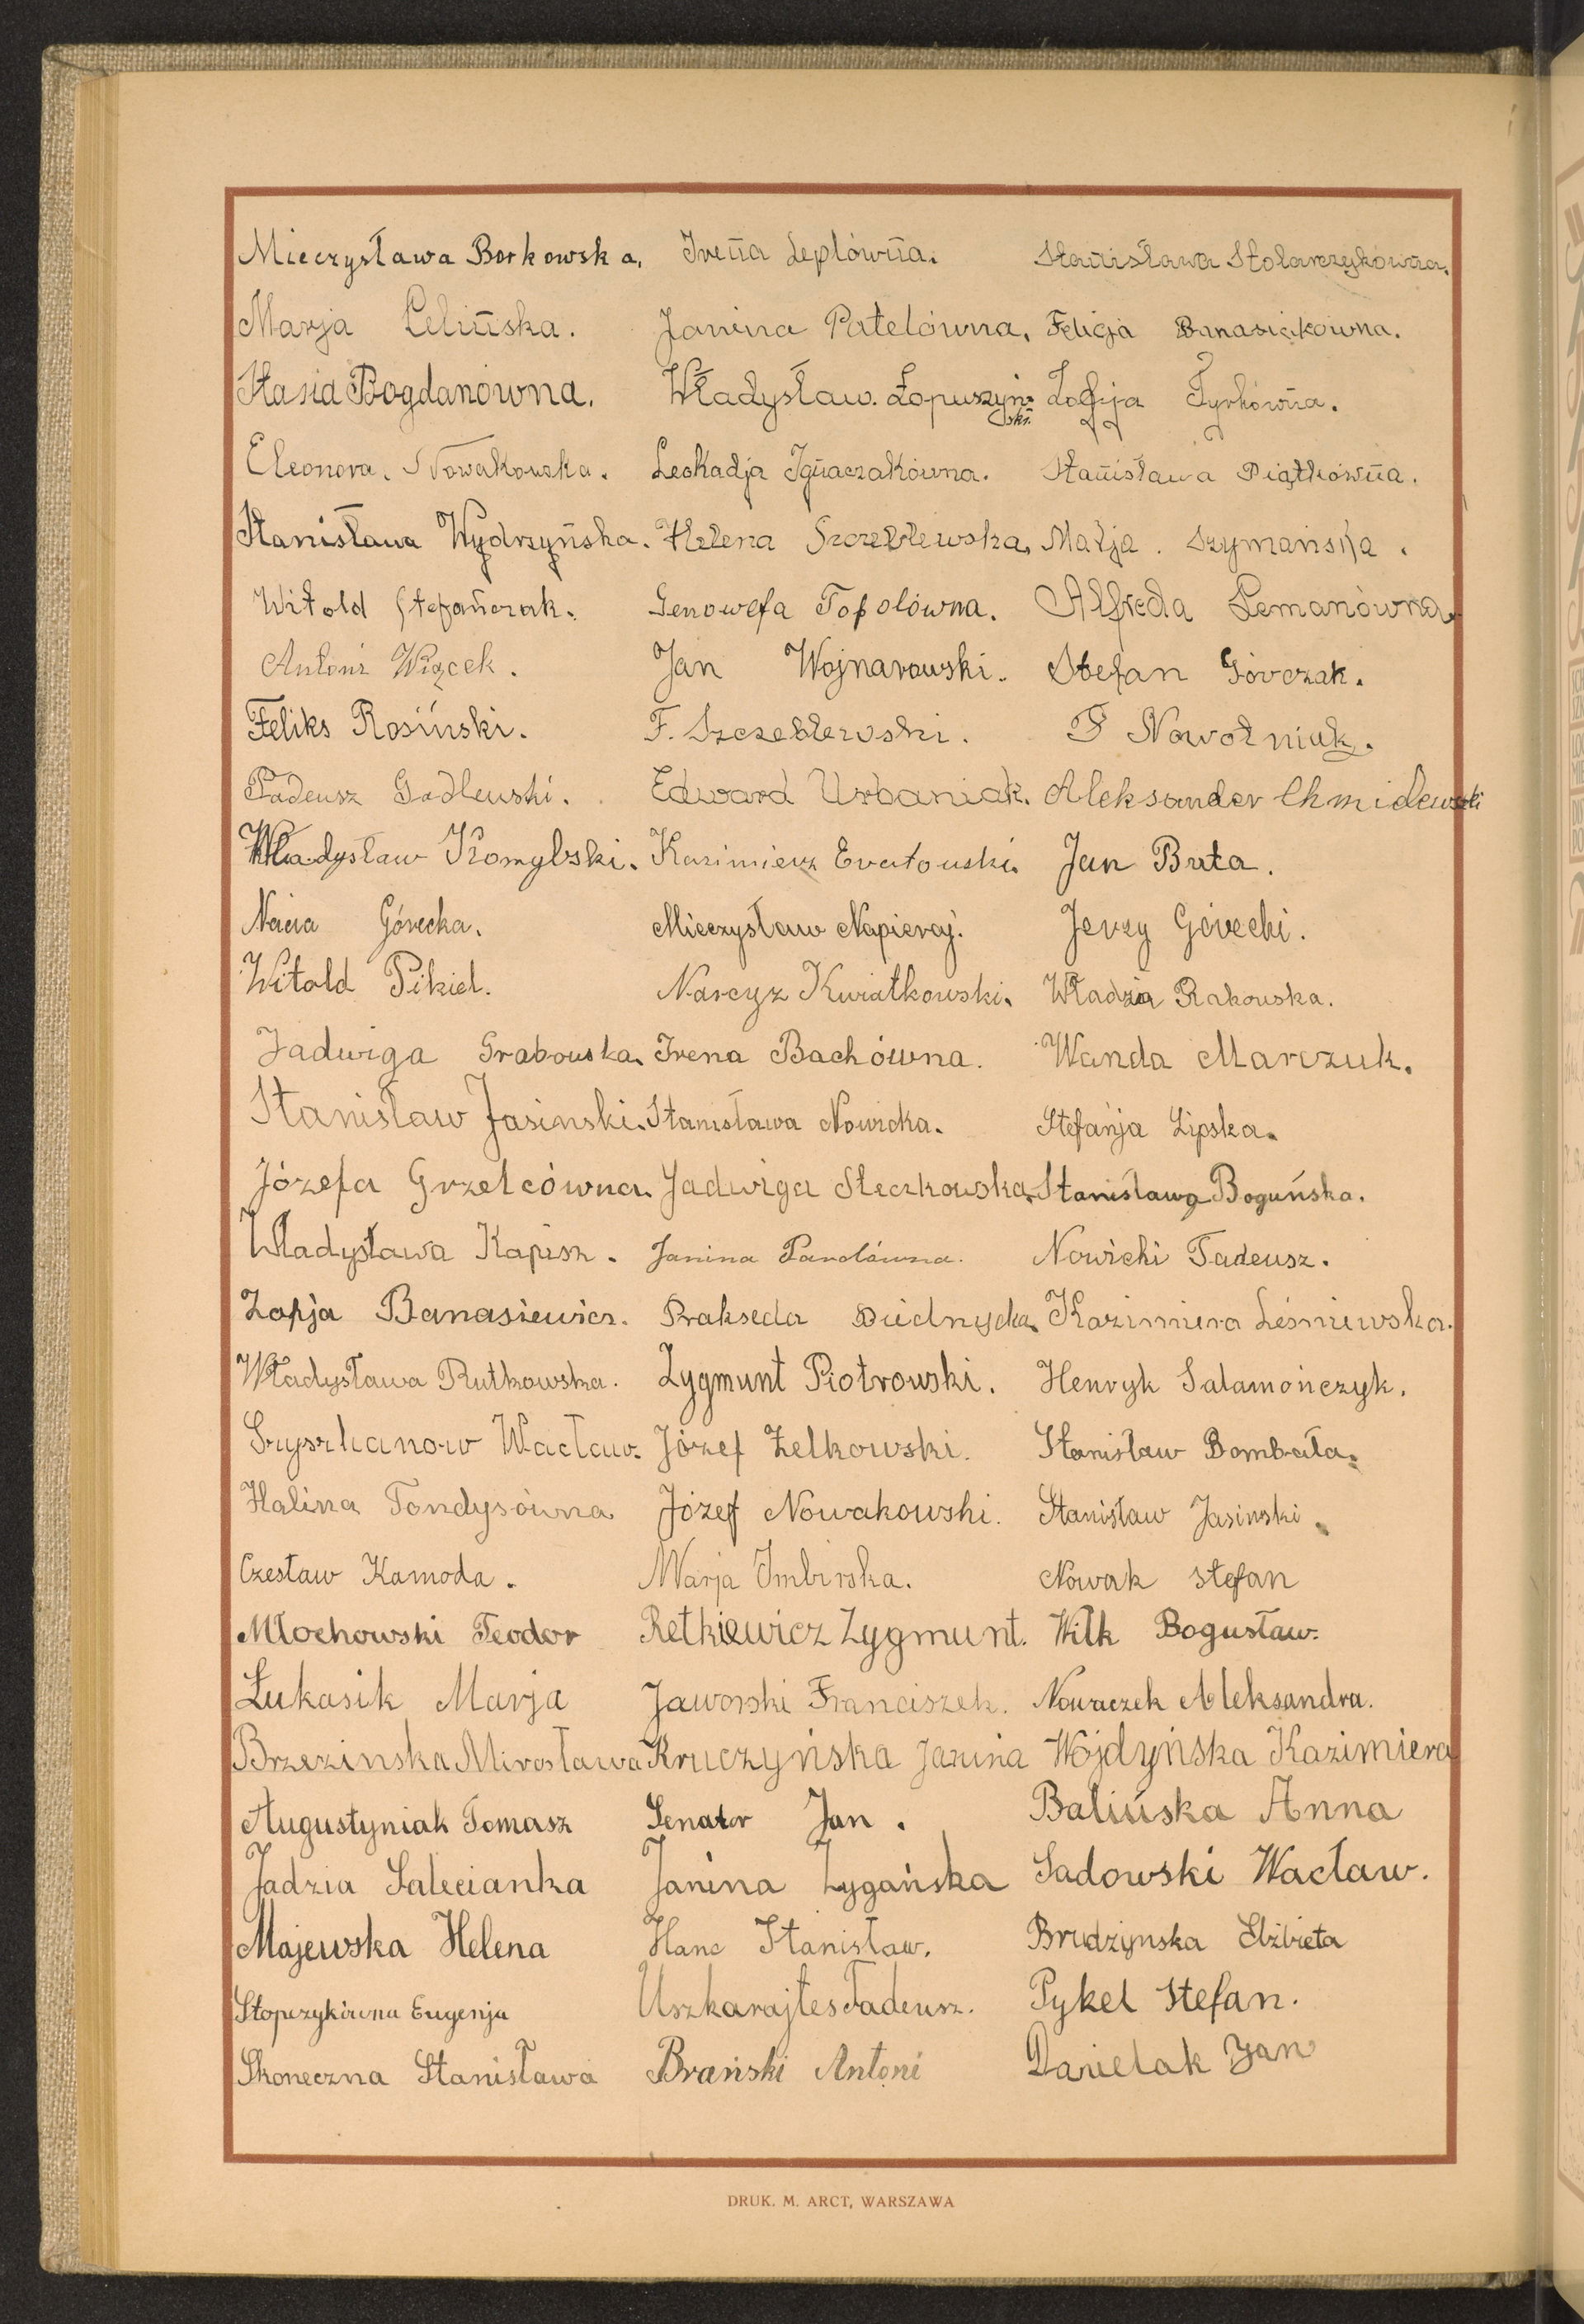 Mieczysława Borkowska. Irena Leplówna. Stanisława Stolarczykówna.
Marja Celińska. Janina Patelówna. Felicja Banasiakówna.
Stasia Bogdanówna. Władysław. Łopuszyń- Zofja Tyrkówna.
ski.
Eleonora. Nowakowska. Leokadja Ignaczakówna. Stanisława Piątkówna.
Stanisława Wydrzyńska. Helena Szczeblewska, Marja. Szymańska.
Witold Stefańczak. Genowefa Topolówna. Alfreda Lemanówna.
Antoni Wiącek. Jan Wojnarowski. Stefan Górczak.
Feliks Rosiński. F. Szczeblewski. F Nowotniak.
Tadeusz Godlewski. Edward Urbaniak. Aleksander Chmielewski
Władysław Kazimierz Jan Buta.
Nacia Górecka. Mieczysław Napieraj. Jerzy Górecki.
Witold Pikiel. Narcyz Kwiatkowski. Władzia Rakowska.
Jadwiga Grabowska. Irena Bachówna. Wanda Marczuk.
Stanisław Jasinski. Stanisława Nowicka. Stefanja Lipska.
Józefa Grzelcówna. Jadwiga Steczkowska. Stanisława Boguńska.
Władysława Kapisz. Janina Nowicki Tadeusz.
Zofja Banasiewicz. Prakseda Kazimiera Leśniewska.
Władysława Rutkowska. Zygmunt Piotrowski. Henryk Salamończyk.
Wacław. Józef Zelkowski. Stanisław Bombała.
Halina Tondysówna Józef Nowakowski. Stanisław Jasinski.
Czesław Kamoda. Marja Imbirska. Nowak Stefan
Młochowski Teodor Retkiewicz Zygmunt. Wilk Bogusław.
Łukasik Marja Jaworski Franciszek. Nowaczek Aleksandra.
Brzezinska Mirosława Kruczyńska Janina Wójdyńska Kazimiera
Augustyniak Tomasz Senator Jan. Balińska Anna
Jadzia Salecianka Janina Zygańska Sadowski Wacław.
Majewska Helena Hanc Stanisław. Brudzynska Elżbieta
Stopczykówna Eugenja Uszkarajtes Tadeusz. Pykel Stefan.
Skoneczna Stanisława Brański Antoni Danielak Jan
DRUK. M. ARCT, WARSZAWA